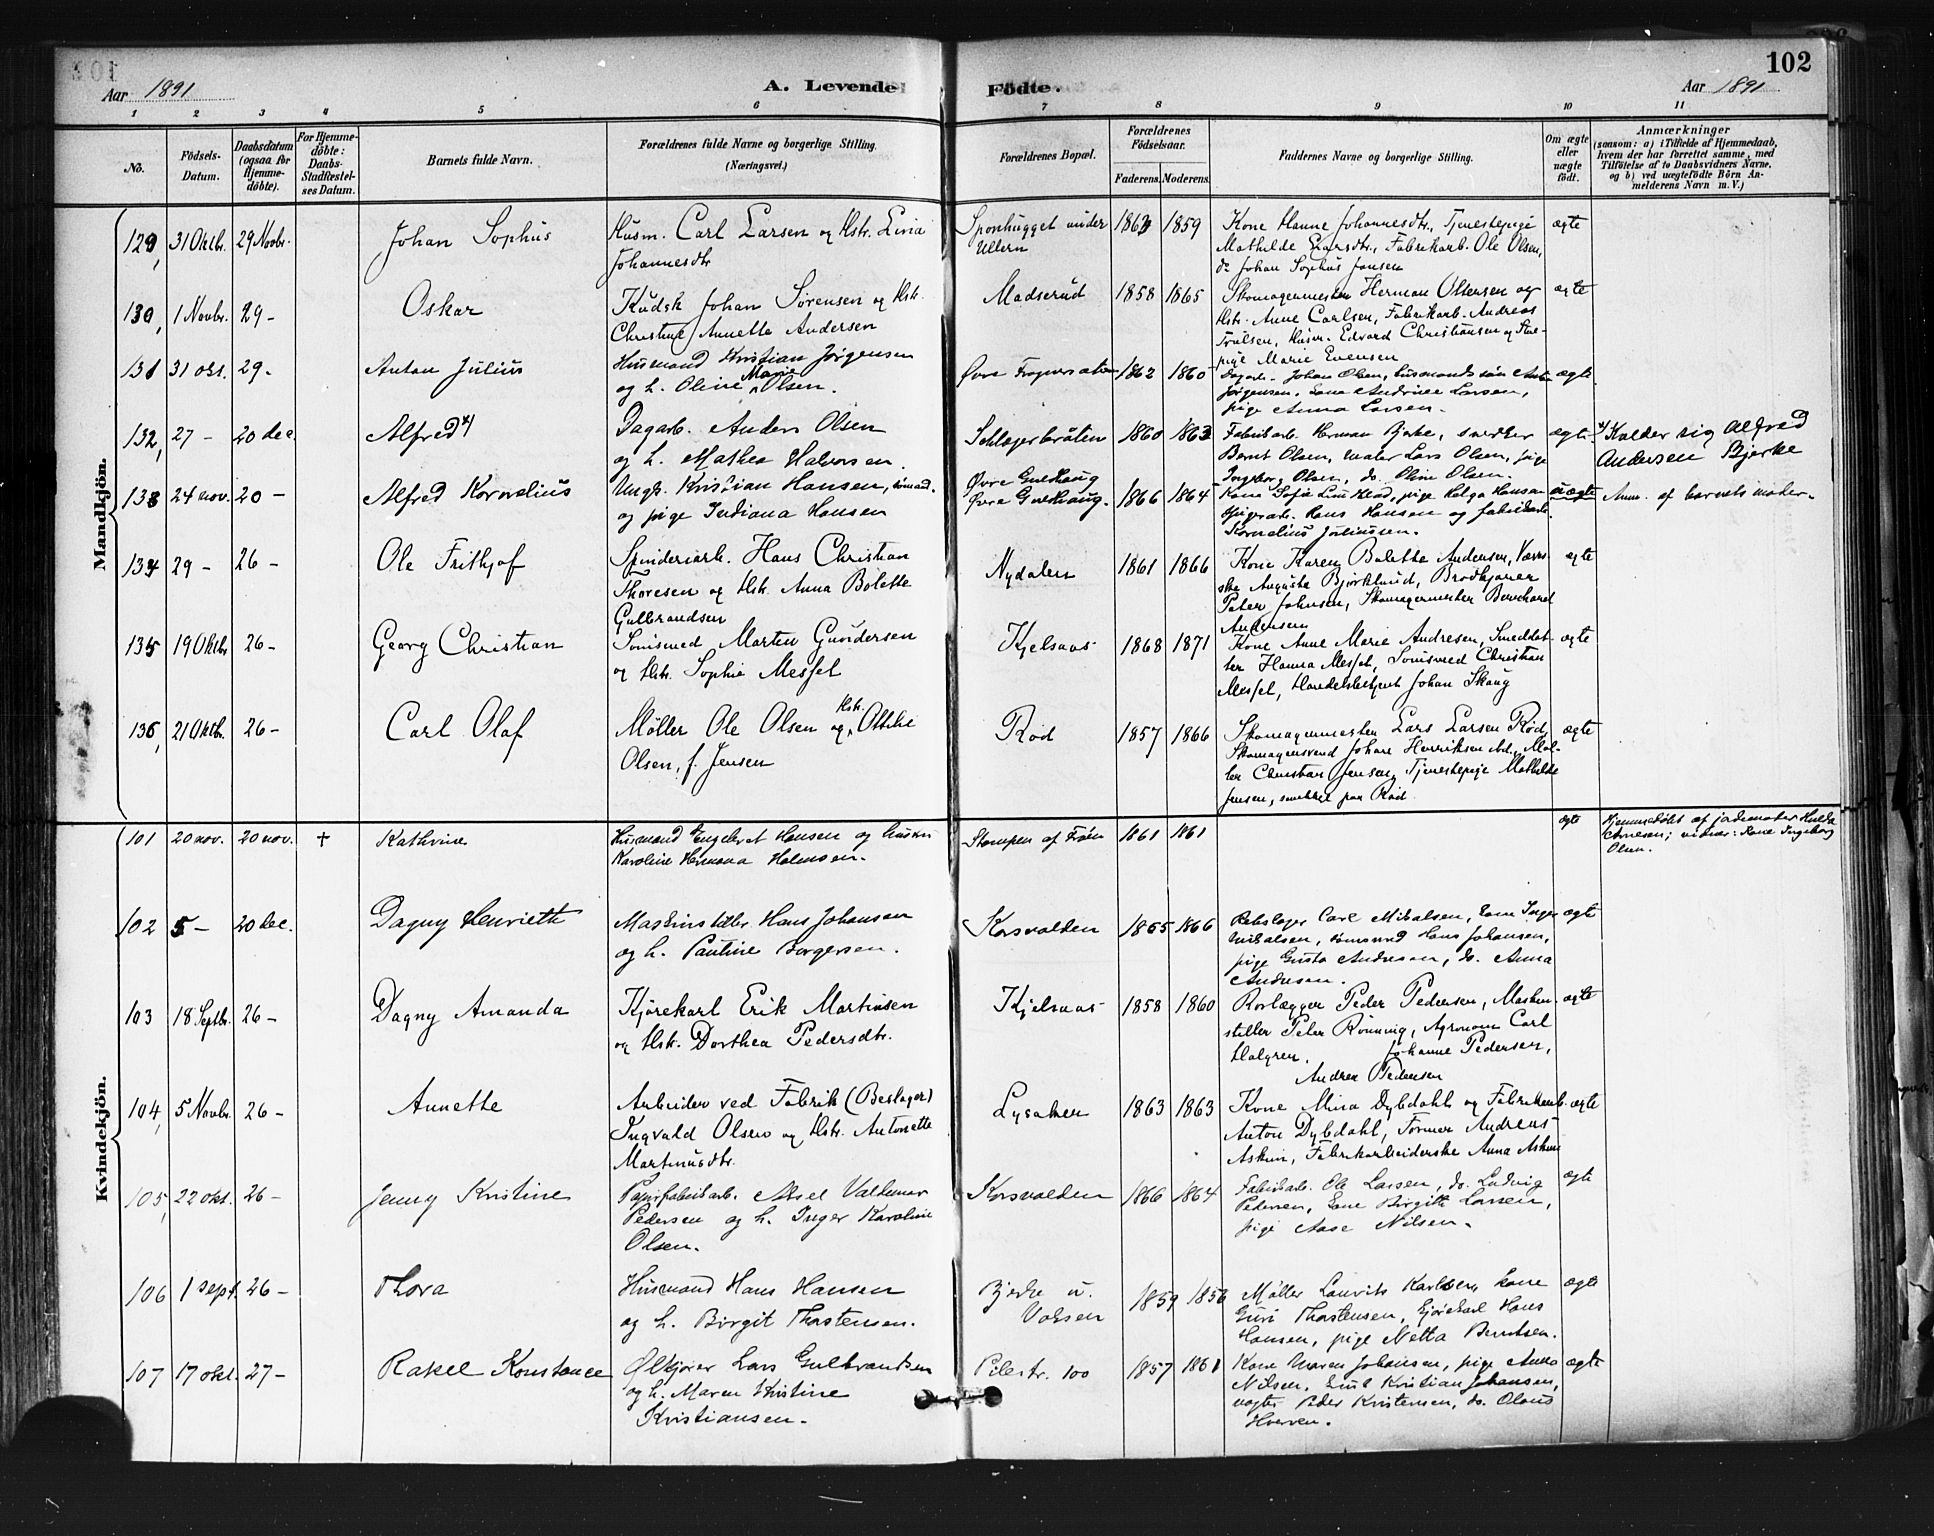 102
Aar 1891
A. Levende Födte.
Aar 1891
1 2 3 4 5 6 7 8 9 10 11
No.
Födsels-Datum.
Daabsdatum (ogsaa for Hjemme-döbte).
For Hjemme-döbte: Daabs-Stadfæstel-ses Datum.
Barnets fulde Navn.
Forældrenes fulde Navne og borgerlige Stilling. (Næringsvei.)
Forældrenes Bopæl.
Forældrenes Födselsaar.
Faderens. Moderens.
Faddernes Navne og borgerlige Stilling.
Om ægte eller uægte födt.
Anmærkninger (saasom: a) i Tilfælde af Hjemmedaab, hvem der har forrettet samme, med Tilföielse af to Daabsvidners Navne, og b) ved uægtefödte Börn An-melderens Navn m. V.)
Mandkjön.
129, 31 Oktbr. 29 Novbr. Johan Sophus
Husm. Carl Larsen og Hstr. Lina
Johannesdtr
Sponhugget under
Ullern
1863 1859
Kone Hanne Johannesdtr., Tjenestepige
Mathilde Larsdtr., Fabrikarb. Ole Olsen,
do Johan Sophus Jansen
ægte
130, 1 Novbr. 29 - Oskar
Kudsk Johan Sørensen og Hstr.
Christine Annette Andersen
Madserud 1858 1865
Skomagermester Herman Ottersen og
Hstr. Anne Carlsen, Fabrikarb. Andreas
Trulsen, Husm. Edvard Christiansen og
pige Marie Evensen
ægte
131 31 okt. 29 - Anton Julius
Husmand Kristian Jørgensen
og h. Oline Marie Olsen.
Øvre 1862 1860
Dagarb. Johan Olsen, husmandssøn
Jørgensen, kone Andrine Larsen,
pige Anna Larsen.
ægte
132, 27 - 20 dec. Alfred x)
Dagarb. Anders Olsen
og h. Mathea Halvorsen.
Schlægerbråten 1860 1863
Fabrikarb. Herman Bjerke, snedker
Bernt Olsen, maler Lars Olsen, pige
Ingeborg Olsen, do. Oline Olsen.
ægte
x) Kalder sig Alfred
Andersen Bjerke
133 24 nov. 20 - Alfred Kornelius
Ungk. Kristian Hansen,
og pige Indiana Hansen
Øvre Gnelhaug
Øvre Gnelhaug. 1866 1864
Kone Sofie, pige Helga Hansen
Hans Hansen og fabrikarb.
Kornelius Joliussen.
uægte
Anm. af barnets moder.
134 29 - 26 - Ole Frithjof
Spinderiarb. Hans Christian
Thoresen og Hstr. Anna Bolette
Gulbrandsen
Nydalen 1861 1866
Kone Karen Bolette Andersen,
Augusta Bjørklund, Brødkjører
Peter Johnsen, Skomagermester Bernhard
Andersen
ægte
135 19 Oktbr 26 - Georg Christian
Sømsmed Martin Gundersen
og Hstr. Sophie Messel
Kjelsaas 1868 1871
Kone Anne Marie Andresen,
Hanna Messel, Sømsmed Christian
Messel, Handelsbetjent Johan Skaug
ægte
136, 21 Oktbr. 26 - Carl Olaf
Møller Ole Olsen og Hstr. Ottilie
Olsen, f. Jensen
Rød 1857 1866
Skomagermester Lars Larsen Rød,
Skomagersvend Johan Henriksen
Christian Jensen, Tjenestepige Mathilde
Jensen, paa Rød
ægte
Kvindekjön.
101 20 nov. 20 nov. † Kathrine
Husmand Engebret Hansen og hustru
Karoline Hermana Holmsen.
Stampen af Frøen 1861 1861
ægte
Hjemmedøbt af jordemoder Hulda
Arnesen; vidner: Kone Ingeborg
Olsen.
102 5 - 20 dec. Dagny Henriette
Maskinstiller Hans Johansen
og h. Pauline Borgersen.
Korsvolden 1855 1866
Rebslager Carl Mikalsen, kone Inger
Mikalsen, sømsmed Hans Johansen,
pige Gusta Andresen, do. Anna
Andresen.
ægte
103 18 Septbr. 26 - Dagny Amanda
Kjørekarl Erik Martinsen
og Hstr. Dorthea Pedersdtr.
Kjelsaas 1858 1860
Rørlægger Peder Pedersen, Maskin-
stiller Peter Rønning, Agronom Carl
Halgren. Johanne Pedersen,
Andrea Pedersen
ægte
104, 5 Novbr. 26 - Annette
Arbeider ved Fabrik (Beslager)
Ingvald Olsen og Hstr. Antonette
Martinusdtr.
Lysaker 1863 1863
Kone Mina Dybdahl og Fabrikarb.
Anton Dybdahl, Former Andreas
Askim, Fabrikarbeiderske Anna Askim
ægte
105, 22 okt. 26 - Jenny Kristine
Papirfabrikarb. Aksel Valdemar
Pedersen og h. Inger Karoline
Olsen.
Korsvolden 1866 1864
Fabrikarb. Ole Larsen, do. Ludvig
Pedersen, kone Birgitte Larsen,
pige Aase Nilsen.
ægte
106 1 sept. 26 - Thora
Husmand Hans Hansen
og h. Birgit Thorstensen.
Bjerke u.
Voksen
1859 1856
Møller Lauritz Karlsen, kone
Guri Thorstensen, kjørekarl Hans
Hansen, pige Netta Berntsen.
ægte
107 17 okt. 27 - Rakel Konstance
Ølkjører Lars Gulbrandsen
og h. Maren Kristine
Kristiansen.
Pilestr. 100 1857 1861
Kone Maren Johansen, pige Anna
Nilsen, Emil Kristian Johansen,
vogter Peder Kristensen, do. Olaus
Hverven.
ægte